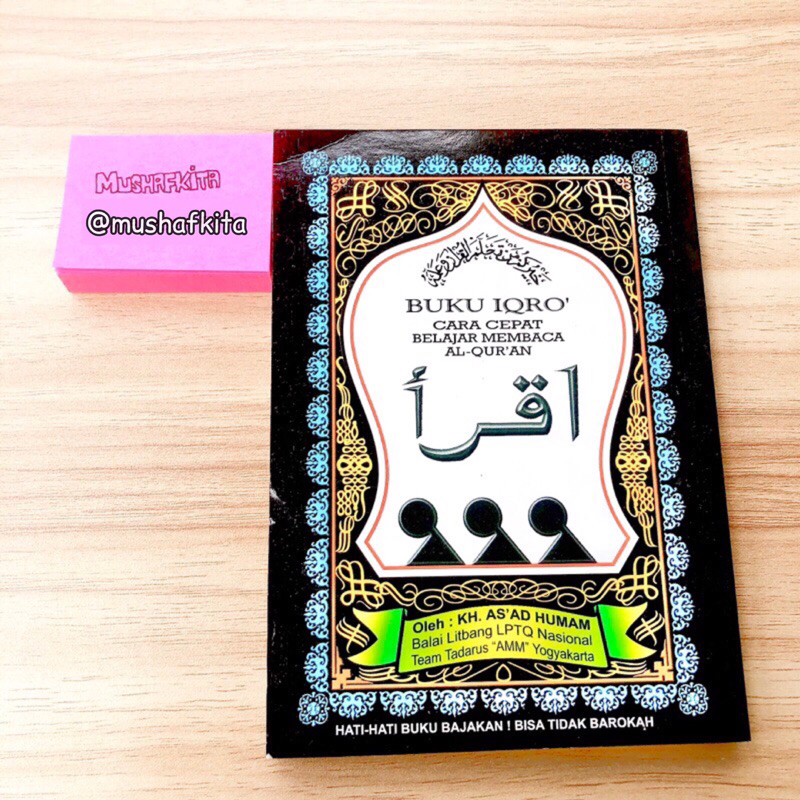 MUSHAFKITA
@mushafkita
خيركم من تعلم القرآن وعلمه
BUKU IQRO'
CARA CEPAT
BELAJAR MEMBACA
AL-QUR'AN
اقرأ
Oleh : KH. AS'AD HUMAM
Balai Litbang LPTQ Nasional
Team Tadarus "AMM" Yogyakarta
HATI-HATI BUKU BAJAKAN ! BISA TIDAK BAROKAH